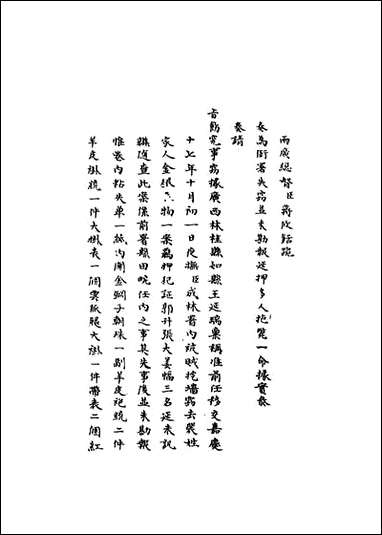 兩廣總督臣蔣攸銛跪
奏為衙署失竊並未勘報延押多人拖斃一命據實恭
奏請
旨飭究事竊據廣西林桂縣知縣王延瑞稟稱准前任移交嘉慶
十七年十月初一日夜撫臣成林署內被賊挖墻竊去裴姓
家人金銀衣物一案羈押犯証郭升張大姜幅三名延未訊
辦隨查此案係前署縣田畹任內之事其失事後並未勘報
惟卷內粘失單一紙內開金鐲子朝珠一副羊皮袍統二件
羊皮褂統一件大褂表一個雲狐腿大褂一件帶表二個紅